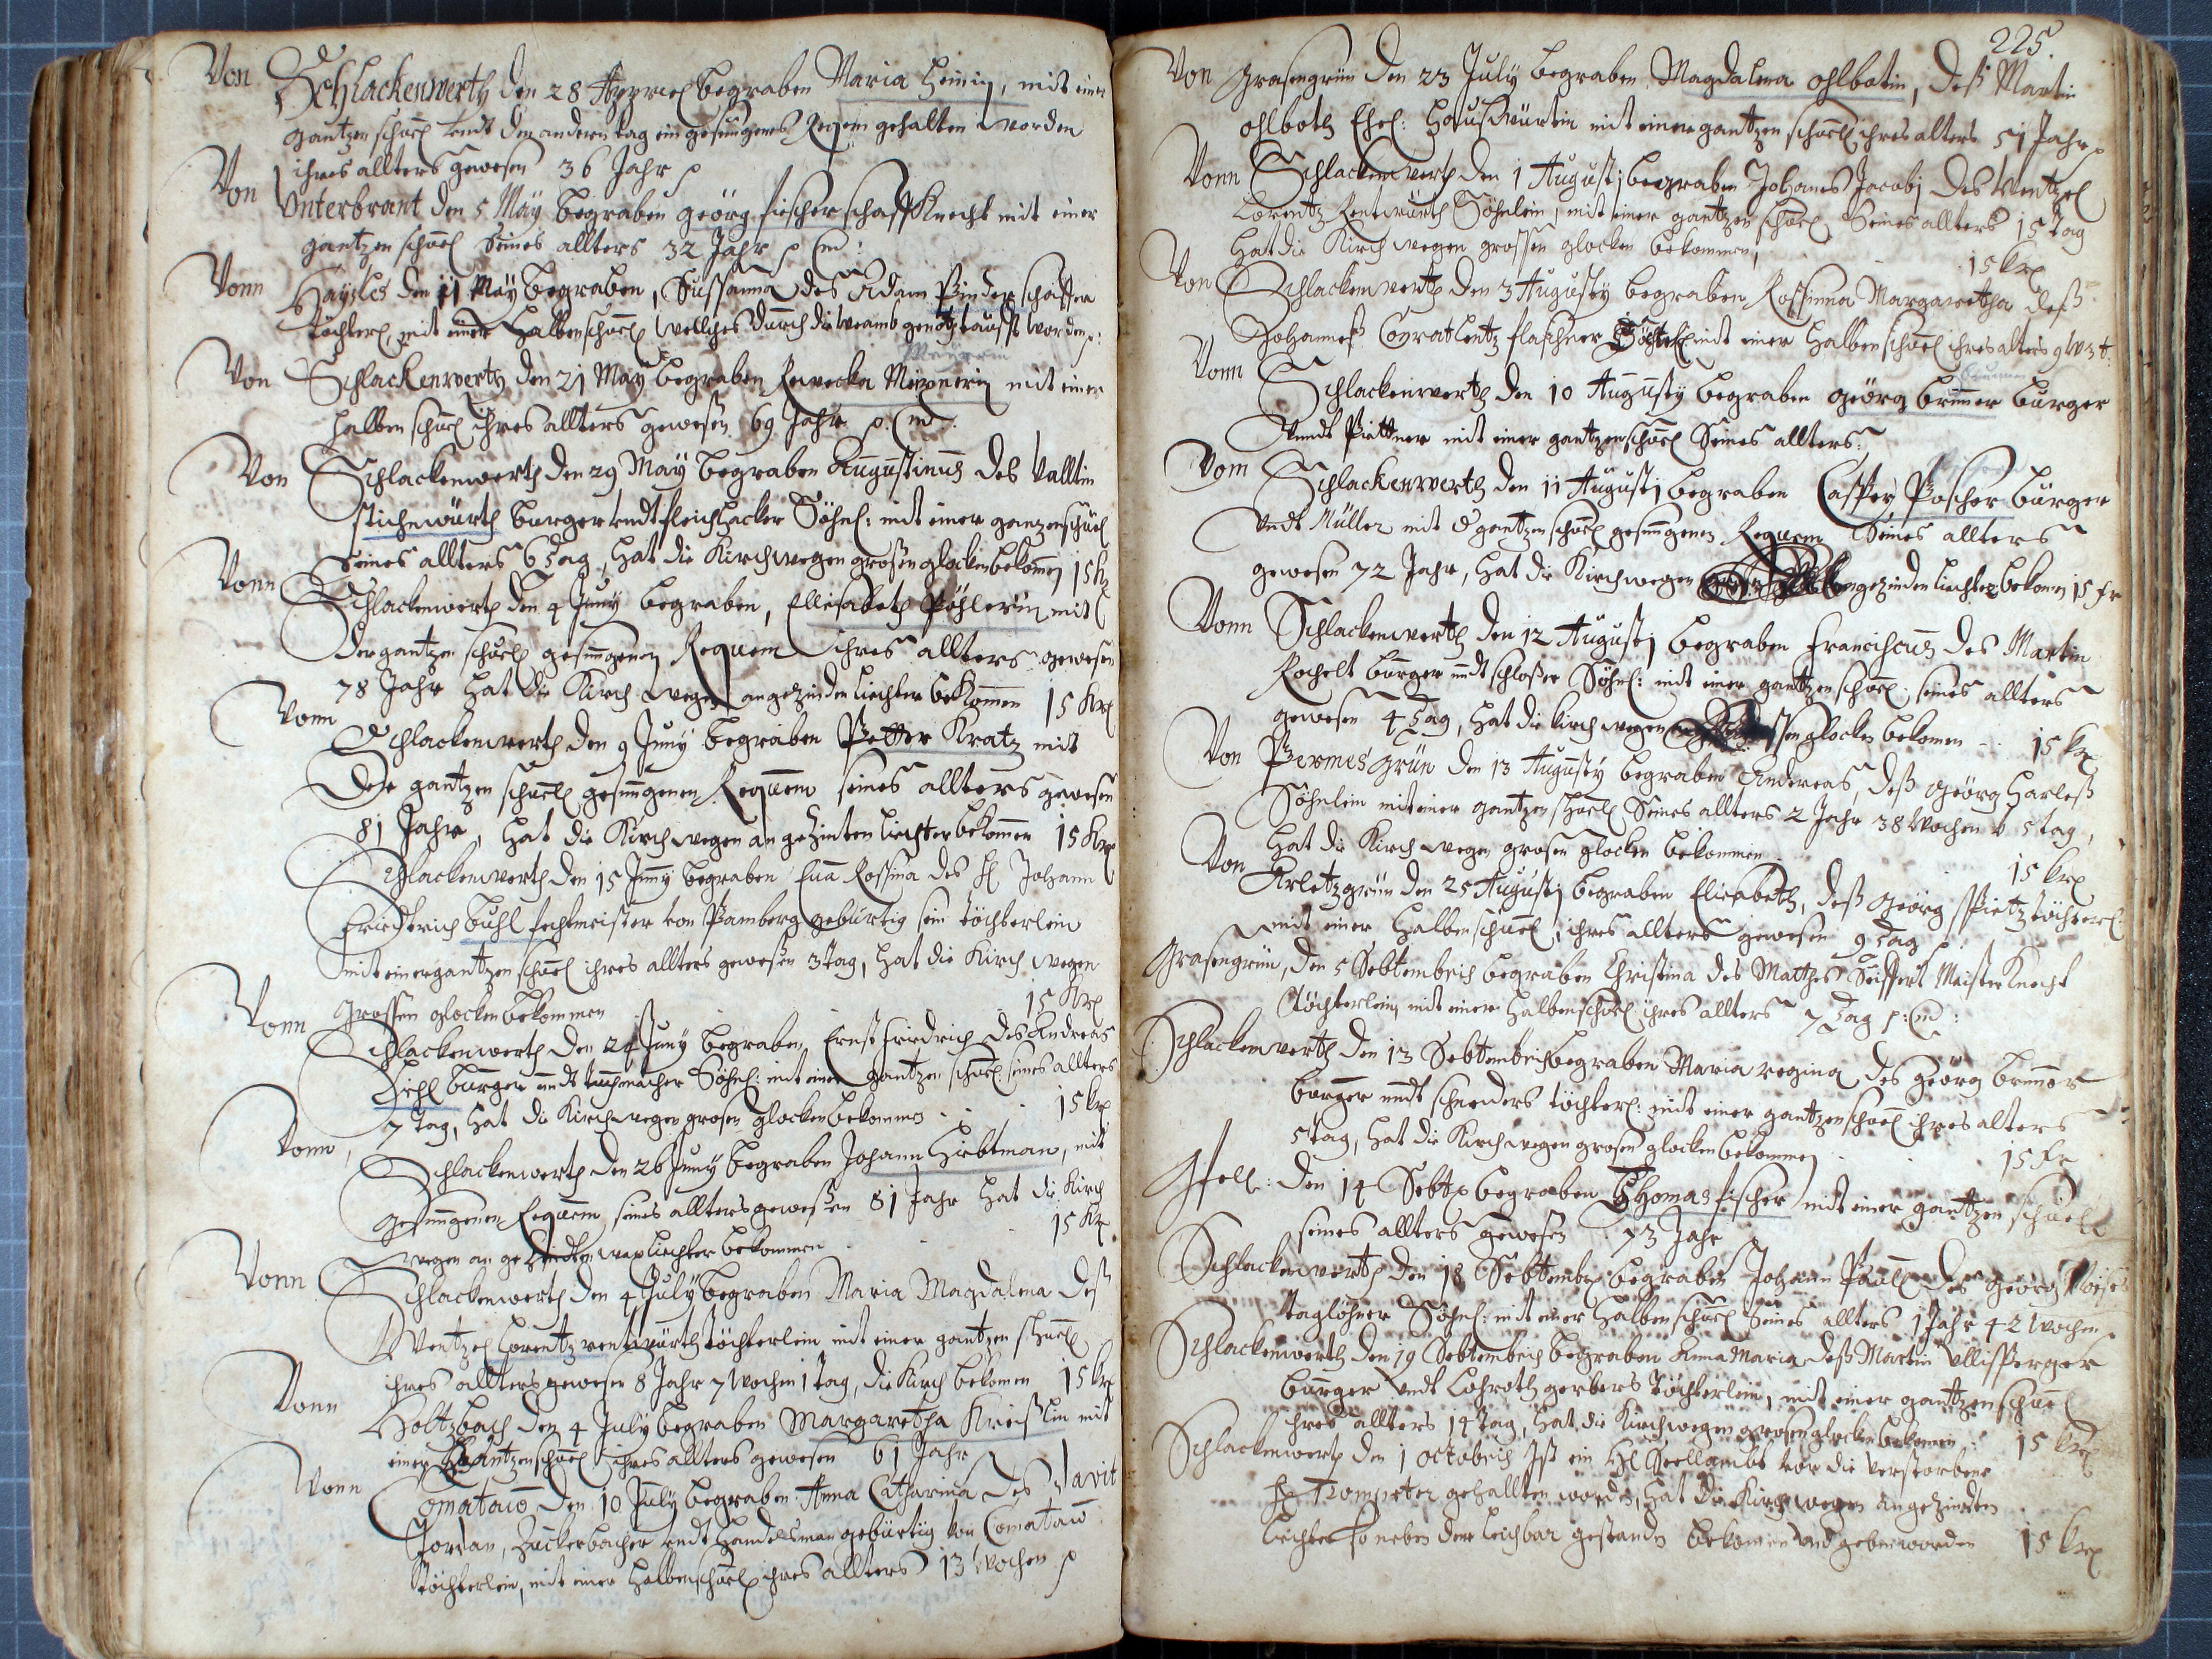 Von Schlackenwerth den 28 Apprill begraben Maria Heinin, mit einer
gantzen schuel undt den andern tag ein gesungenes Requem gehalten worden
ihres allters gewesen 36 Jahr
Von Unterbrant den 5 May begraben georg fischer schaffknecht mit einer
gantzen schuel Seines allters 32 Jahr
Vonn Haysles den 11 May begraben, Sussanna des Adam Pinder schaffer
töchterl, mit einer Halben schuel welliches durch die weamb genothtaufft worden
Von Schlackenwerth den 21 May begraben Rewecka Meixnerin mit einer
halben schuel ihres allters gewesen 69 Jahr
Von Schlackenwerth den 29 May begraben Augustinus des Valltin
stichenwürth burger undt fleichhacker Söhnl: mit einer gantzen schuel
Seines allters 6 tag, hat die Kirch wegen grosen glocken bekomen 15 kr
Vonn Schlackenwerth den 4 Juny begraben, Ellisabeth Pöhlerin mit
der gantzen schuel gesungenen Requem ihres allters gewesen
78 Jahr hat die Kirch wegen angezinden liechter bekommen 15 kr
Vonn Schlackenwerth den 9 Juny begraben Petter Kratz mit
der gantzen schuell gesungenen Requem seines allters gewesen
81 Jahr, hat die Kirch wegen angezinten liechter bekomen 15 kr
Schlackenwerth den 15 Juny begraben Eua Rossina des H Johann
Friedtrich Buhl fechtmeister von Bamberg gebürtig sein töchterlein
mit einer gantzen schuel ihres allters gewesen 3 tag, hat die Kirch wegen
grossen glocken bekommen 15 kr
Vonn Schlackenwerth den 24 Juny begraben Ernst Friedrich des Andreas
Hihl burger undt tuchmacher Söhnl: mit einer gantzen schuel seines allters
7 tag, hat die Kirch wegen grosen glocken bekomen 15 kr
Vonn, Schlackenwerth den 26 Juny begraben Johann Hiebtman, mit
gesungenen Requem seines allters gewesen 81 Jahr hat die Kirch
wegen angezindten wax liechter bekommen 15 kr
Vonn Schlackenwerth den 4 July begraben Maria Magdalena deß
Wentzel Lorentz rentwürth töchterlein mit einer gantzen schuel
ihres allters gewesen 8 Jahr 7 wochen 1 tag, die Kirch bekomen 15 kr
Vonn Holtzbach den 4 July begraben Margaretha Kreißlin mit
einer gantzen schuel ihres allters gewesen 61 Jahr
Vonn Comataw den 10 July begraben Anna Catharina des Davit
Jordan, Zuckerbacher undt Handelsman gebürtig von Comataw
töchterlein, mit einer halben schuel ihres allters 13 wochen
225.
Von Grasengrün den 23 July begraben Magdalena ohlbotin, deß Martin
ohlboth Ehel: Haußwürtin mit einer gantzen schuel ihres alters 51 Jahr
Vonn Schlackenwerth den 1 Augusti begraben Johanes Jacobi des Wentzel
Lorentz Rentwürth Söhnlein, mit einer gantzen schuel Seines allters 15 tag
hat die Kirch wegen grossen glocken bekommen, 15 kr
Von Schlackenwerth den 3 Augusty begraben Rossinna Margaretha deß
Johanneß Conrat Lentz flaschner töchterl mit einer halben schuel ihres alters 9
Vonn Schlackenwerth den 10 Augusty begraben georg bruner burger
Vndt Pittner mit einer gantzen schuel Seines allters:
Vom Schlackenwerth den 11 Augusti begraben Casper Poscher burger
Vndt Müller mit gantzen schuel gesungenen Requem Seines allters
gewesen 72 Jahr, hat die Kirch wegen angezinden liechter bekomen 15 kr
Vonn Schlackenwerth den 12 Augusti begraben Franciscus des Martin
Rochelt burger undt schlosser Söhnl: mit einer gantzen schuel seines allters
gewesen 4 tag, hat die kirch wegen glocken bekomen 15 kr
Von Permesgrün den 13 Augusty begraben Andereas, deß georg Harleß
Söhnlein mit einer gantzen schuel Seines allters 2 Jahr 38 wochen 5 tag,
hat die Kirch wegen grosen glocken bekommen 15 kr
Von Arletzgrün den 25 Augusti begraben Elisabeth, deß georg Pietz töchterl
mit einer halben schuel, ihres allters gewesen 9 tag
Grasengrün, den 5 Sebtembris begraben Christina des Matthes Seiffert Meister Knecht
töchterlein mit einer halben schuel ihres allters 7 tag
Schlackenwerth den 13 Sebtembris begraben Maria regina des georg bruner
burger undt schneiders töchterl: mit einer gantzen schuel ihres alters
5 tag, hat die Kirch wegen grosen glocken bekommen 15 kr
Gfell: den 14 Sebt begraben Thomas fischer mit einer gantzen schuel
seines allters gewesen 73 Jahr
Schlackenwerth den 18 Sebtembr begraben Johann Paul des georg
taglöhner Söhnl: mit einer halben schuel Seines allters 1 Jahr 42 wochen
Schlackenwerth den 19 Sebtembris begraben Anna Maria deß Martin Ullisperger
burger undt Lohroth gerbers töchterlein, mit einer gantzen schuel
ihres allters 14 tag, hat die Kirch wegen grosen glocken bekomen 15 kr
Schlackenwerth den 1 octobris Ist ein Seellambt vor die Verstorbene
Trompeter gehallten worden, hat die Kirch wegen angezinden
liechter so neben der leichbar gestanden bekomen undt geben worden 15 kr